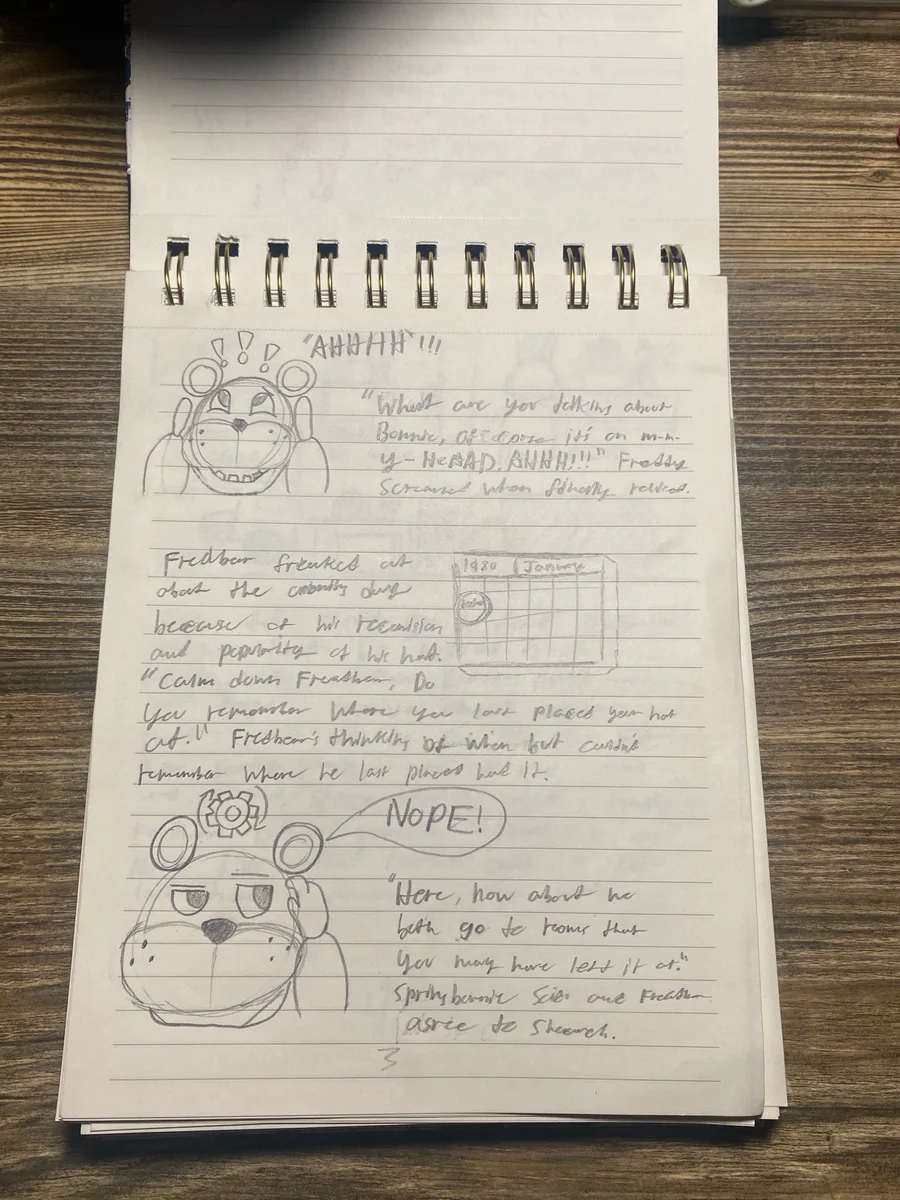 "AHHHH"!!!
"What are you talking about
Bonnie, ofcorse it's on m-m-
y-HeAAD. AHHH!!!" Freddy
Screamed when finally
Fredbear freaked out
about the
because of his
and popularity of his hat.
1980 January
"Calm down Fredbear, Do
you remember where you last placed your hat
at." Fredbear's thinking of when but
remember where he last placed had it.
NOPE!
"Here, how about we
both go to rooms that
you may have left it at."
Springbonnie and Fredbear
agree to
3